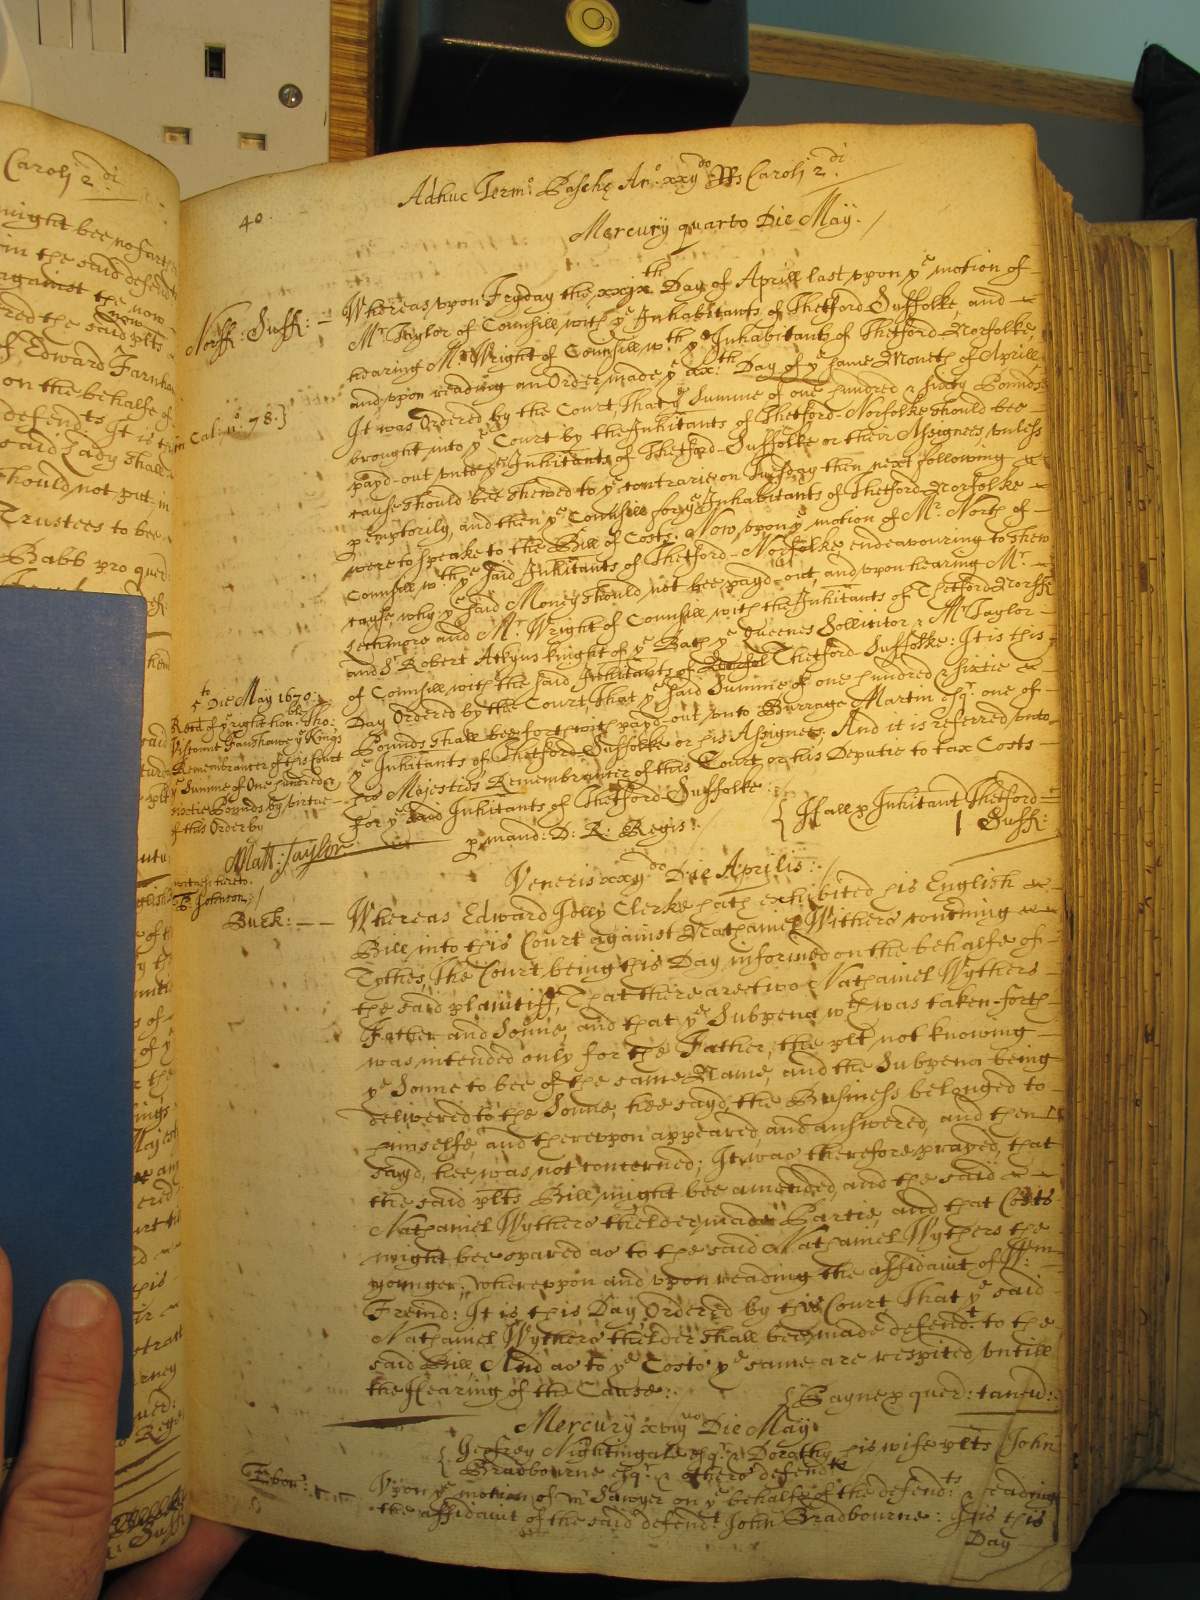 Caroli 2.di
might bee no farth
in the said defend
against the now
red the said plts
of Edward Farnha
on the behalfe of
defend:ts It is th
said Lady shall
should not put in
Trustees to bee
Babb pro quer:
40.
Adhuc Term.o Paschę An.o xxij.do Rs Caroli 2.di
Mercurij quarto Die May.
Norff: Suff: —
Whereas vpon Fryday the xxix.th Day of Aprill last vpon y.e motion of
M.r Taylor of Counsill with y.e Inhabitants of Thetford Suffolke, and
hearing M.r Wright of Counsill w.th y.e Inhabitants of Thetford Norfolke,
and vpon reading an Order made y.e xx.th Day of y.e same Moneth of Aprill
It was Ordered by the Court, That y.e Summe of one hundred & sixty Pounds
brought into y.e Court by the Inhabitants of Thetford Norfolke should bee
payd-out vnto y.e Inhabitants of Thetford-Suffolke or their Assignees, vnless
cause should bee shewed to y.e contrarie on Tuesday then next following
pemptorily, and then y.e Counsill for y.e Inhabitants of Thetford Norfolke
were to speake to the Bill of Costs. Now vpon y.e motion of M.r North of
Counsill w.th y.e said Inhitants of Thetford-Norfolke endeavouring to shew
cause, why y.e said Money should not bee payd-out, and vpon hearing M.r
Lechmore and M.r Wright of Counsill with the Inhitants of Thetford Norff:
and S.r Robert Atkyns knight of y.e Bath y.e Queenes Sollicitor & M.r Taylor
of Counsill with the said Inhitants of Norfol Thetford Suffolke: It is this
Day Ordered by the Court, That y.e said Summe of one hundred & sixtie
Pounds shall bee forthwith payd-out vnto Burrage Martin Esq.r one of
y.e Inhitants of Thetford-Suffolke or his Assignes. And it is referred vnto
his Majesties Remembrancer of this Court, or his Deputie to tax Costs
for y.e said Inhitants of Thetford-Suffolke:
p mand: D: R: Regis:
{J Hall p Inhitant Thetford=
Suff:
in Cal: n.o 78.}
5.to Die May 1670:
Reced of y.e right hon.ble Tho:
Viscount Fanshawe y.e Kings
Remembrancer of this Court
y.e Summe of One hundred &
sixtie Pounds by virtue
of this Order by
Matt: Taylor
witnes hereto.
T: Johnson:/
Veneris xxij.do Die Aprilis:
Buck: — —
Whereas Edward Jolly Clerke hath exhibited his English
Bill into this Court against Nathaniel Withers touching
Tythes, The Court being this Day informed on the behalfe of
the said plaintiff, That there are two Nathaniel Wythers
Father and Sonne, and that y.e Subpena w.ch was taken-forth
was intended only for the Father, the plt not knowing
y.e Sonne to bee of the same Name, and the Subpena being
delivered to the Sonne, hee sayd, the Business belonged to
himselfe, and therevpon appeared, and answered, and then
sayd, hee was not concerned; It was therefore prayed, that
the said plts Bill might bee amended, and the said
Nathaniel Wythers thelder made Partie, and that Costs
might bee spared as to the said Nathaniel Wythers the
younger; wherevpon and vpon reading the affidavit of W.m
Freind: It is this Day Ordered by this Court, That y.e said
Nathaniel Wythers thelder shall bee made defend.t to the
said Bill And as to y.e Costs y.e same are respited, vntill
the Hearing of the Cause:
{Bayne p quer: tantu:
Mercurij xviij.uo Die May
{Geofrey Nightingale esq.r & Dorothy his wife plts John
Bradbourne esq.r & others defend.ts
Ebor:
Vpon y.e motion of m.r Sawyer on y.e behalfe of the defend:ts & reading
the affidavit of the said defend.t John Bradbourne: It is this
Day